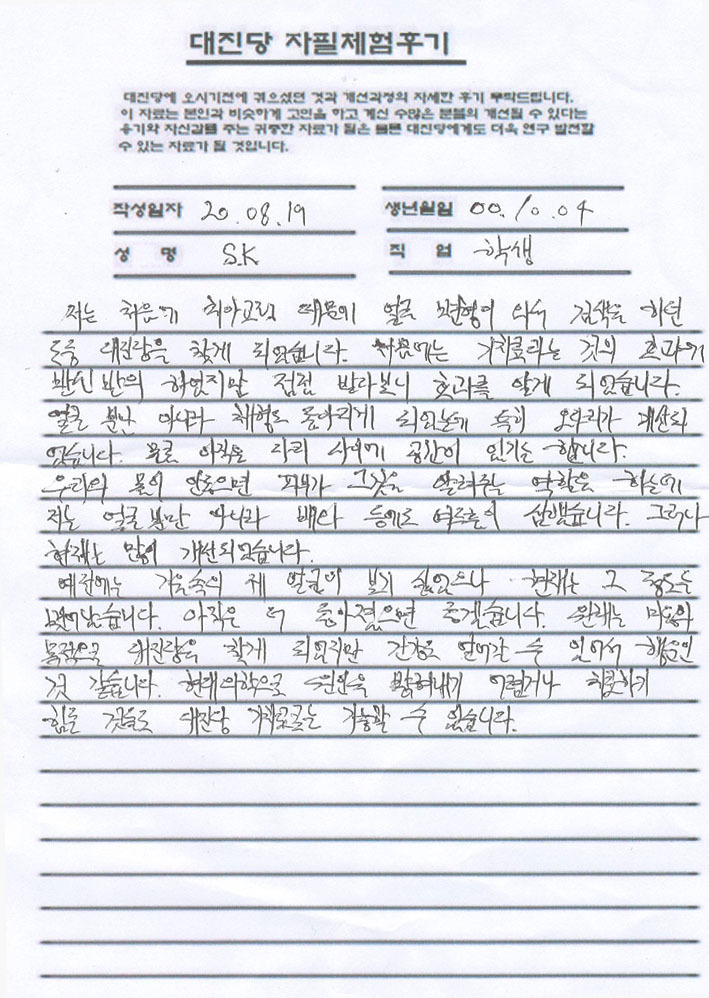 대진당 자필체험후기
대진당에 오시기전에 겪으셨던 것과 개선과정의 자세한 후기 부탁드립니다.
이 자료는 본인과 비슷하게 고민을 하고 계신 수많은 분들의 개선될 수 있다는
용기와 자신감을 주는 귀중한 자료가 됨은 물론 대진당에게도 더욱 연구 발전할
수 있는 자료가 될 것입니다.
작성일자 20.08.19
생년월일 00.10.04
성 명 S.K
직 업 학생
저는 처음에 치아교정 때문에 얼굴 변형이 와서 검색을 하던
도중 대진당을 찾게 되었습니다. 처음에는 것의 효과가
반신반의 하였지만 점점 발라보니 효과를 알게 되었습니다.
얼굴 뿐만 아니라 체형도 돌아리게 되었는데 특히 오다리가 개선되
었습니다. 물론 아직은 다리 사이에 공간이 있기는 합니다.
우리의 몸이 안좋으면 피부가 그것을 알려주는 역할을 하는데
저는 얼굴뿐만 아니라 배와 등에도 여드름이 심했습니다. 그러나
현재는 많이 개선되었습니다.
예전에는 거울속의 제 얼굴이 보기 싫었으나 현재는 그 정도는
벗어났습니다. 아직은 더 좋아졌으면 좋겠습니다. 원래는 미용의
목적으로 대진당을 찾게 되었지만 건강도 얻어갈 수 있어서 행운인
것 같습니다. 현대의학으로 원인을 밝혀내기 어렵거나 치료하기
힘든 것들도 대진당 가능할 수 있습니다.